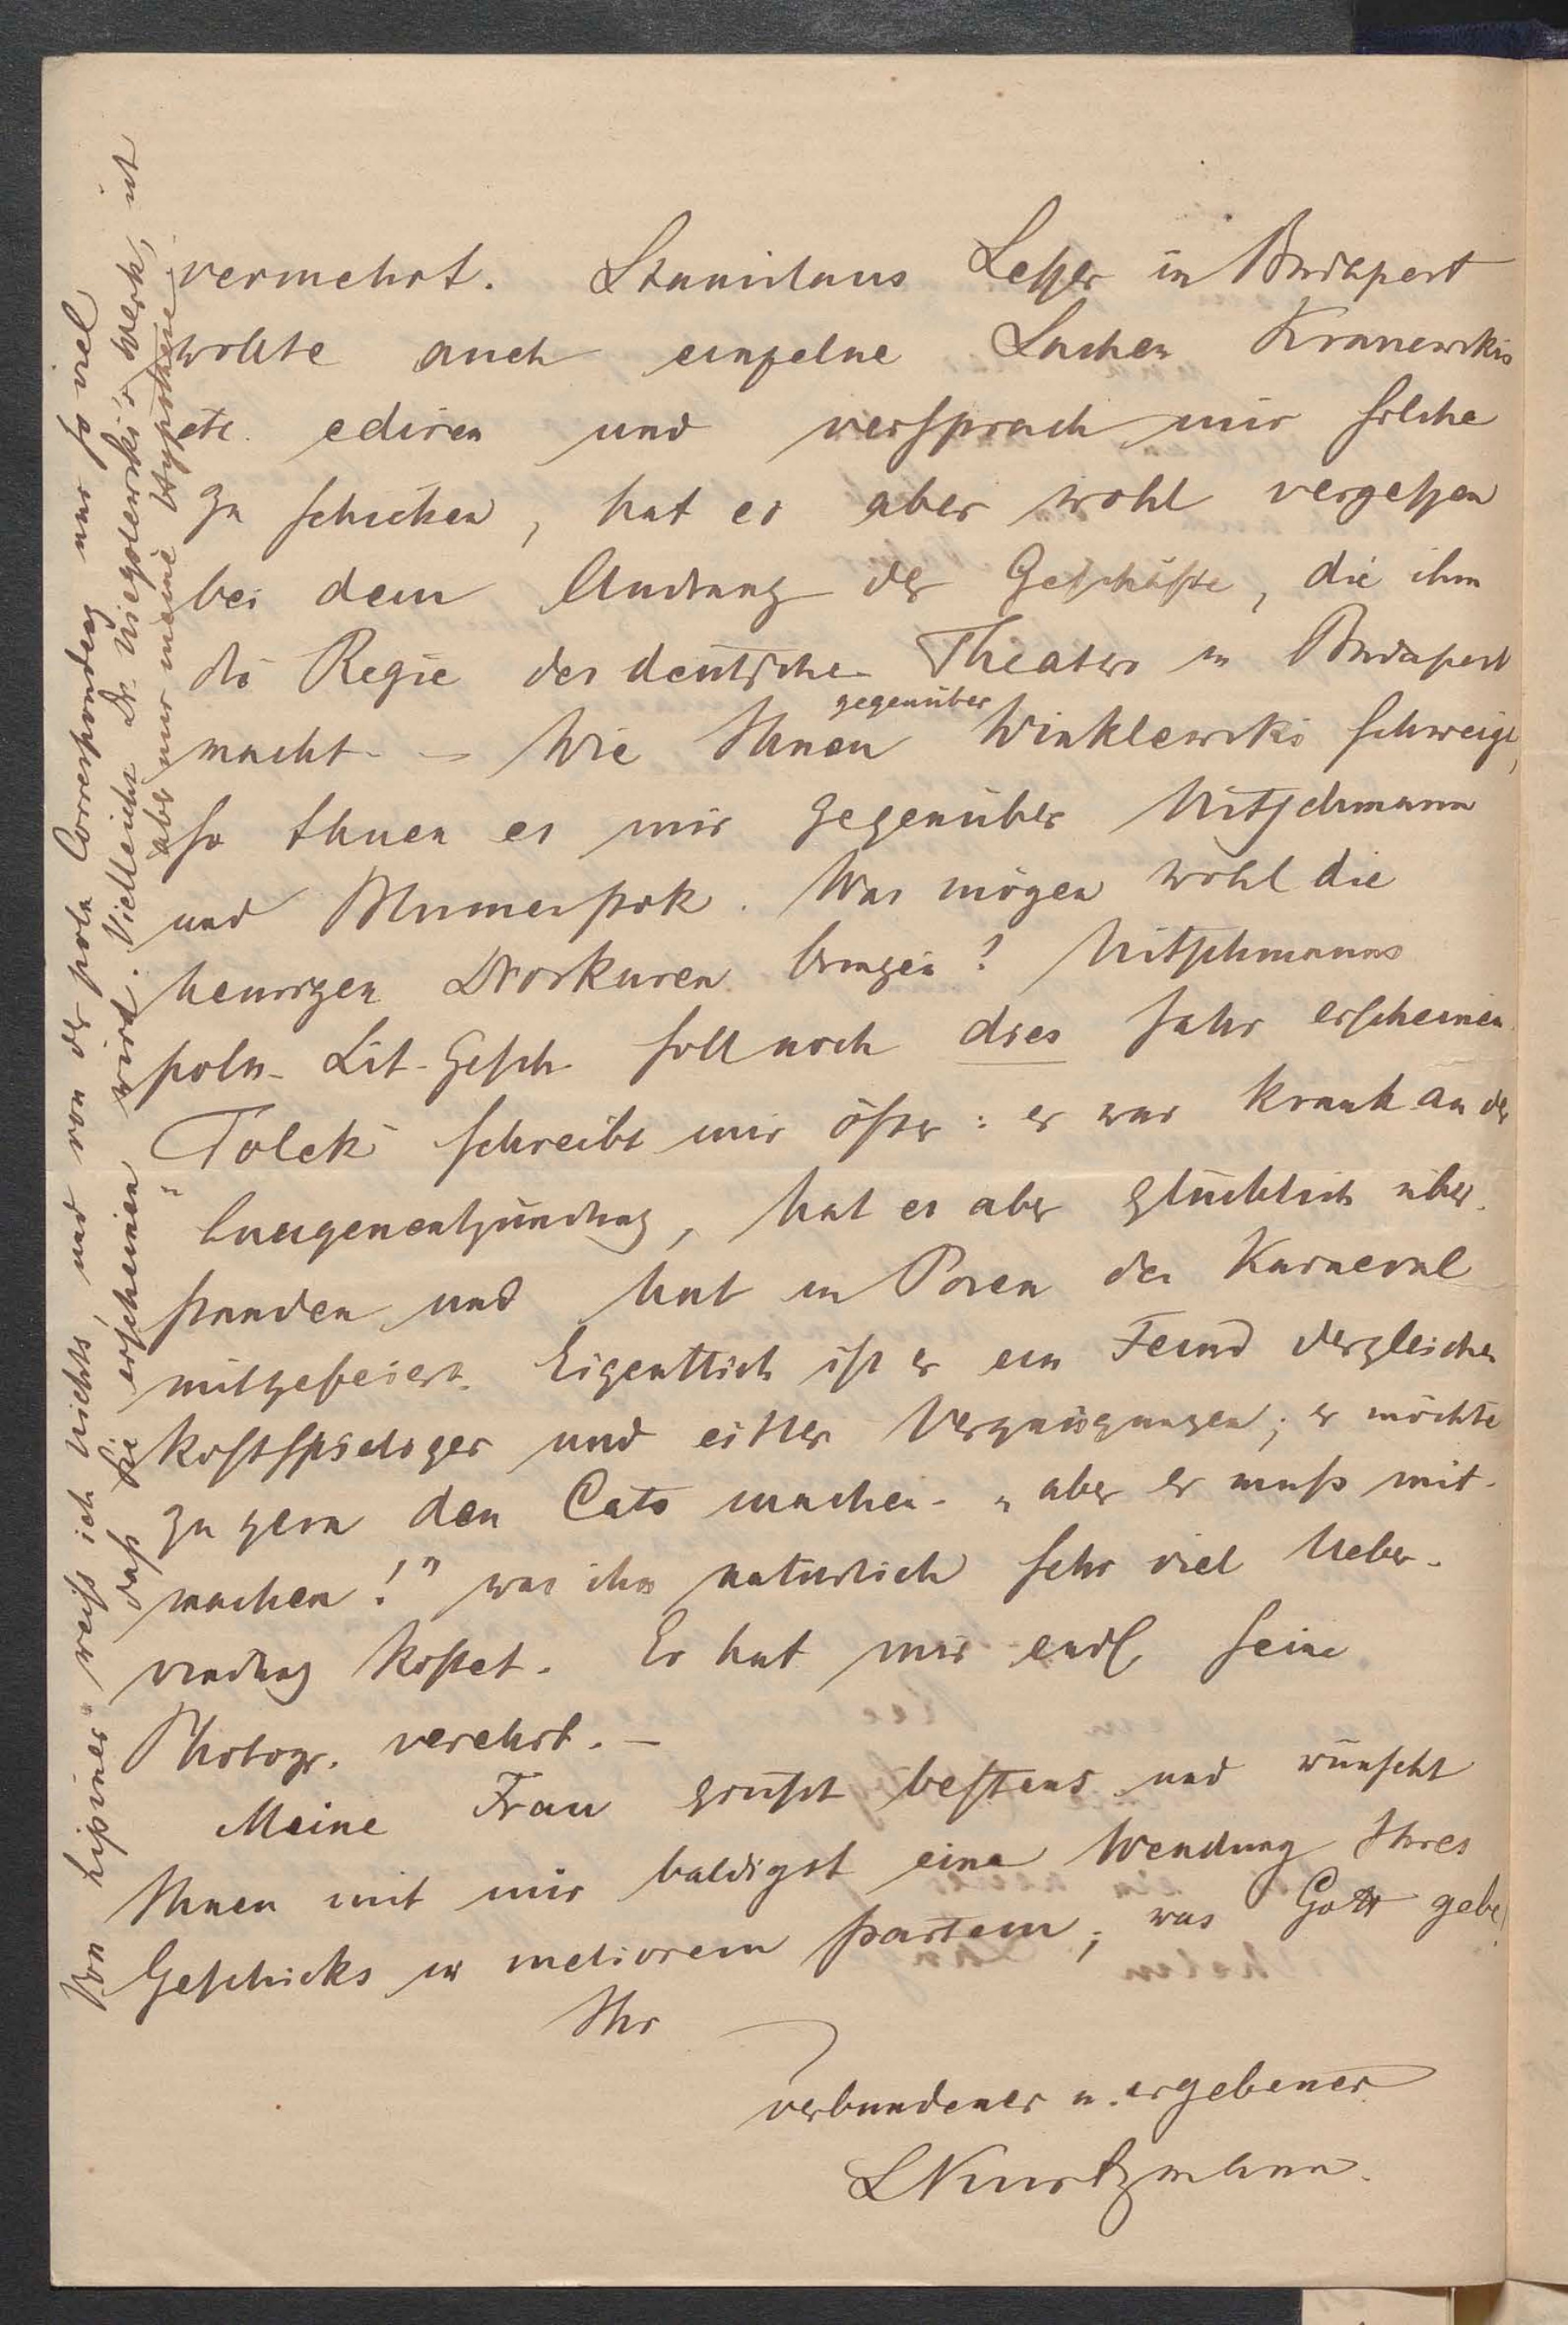 vermehrt. Stanislaus Leßer in Budapest
wollte auch einzelne Sachen Krasewskis
etc. ediren und versprach mir solche
zu schicken, hat es aber wohl vergeßen
bei dem Andrang der Geschäfte, die ihm
die Regie des deutschen Theaters in Budapest
macht. – Wie Ihnen gegenüber Winklewski schweigt,
so thuen es mir gegenüber Nitschmann
und Blumenstok. Was mögen wohl die
heurigen Dioskuren bringen? Nitschmanns
poln. Lit. Gesch. soll noch dies Jahr erscheinen.
"Tolek" schreibt mir öfter: er war krank an der
Lungenentzündung, hat es aber glücklich über-
standen und hat in Posen den Karneval
mitgefeiert. Eigentlich ist er ein Feind dergleichen
kostspieliger und eitler Vergnügungen; er möchte
zu gern den Cato machen – „aber er muß mit-
machen!" was ihm natürlich sehr viel Ueber-
windung kostet. Er hat mir endl. seine
Photogr. verehrt. –
Meine Frau grüßt bestens und wünscht
Ihnen mit mir baldigst eine Wendung Ihres
Geschicks in meliorem partem; was Gott gebe!
Ihr
verbundener u. ergebener
LKurtzmann.
Von Lipiner weiß ich nichts, und von der poln Correspondenz nur so viel
daß sie erscheinen wird. Vielleicht Dr. Niegolewski's Werk, ist
aber nur meine Hypothese